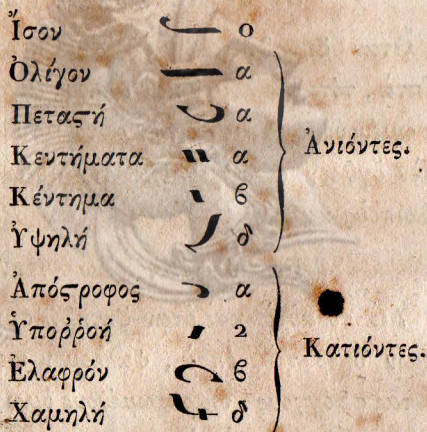 Ἴσον 0
Ὀλίγον α
Πεταστή α
Κεντήματα α
Κέντημα β
Ὑψηλή δ
Ἀνιόντες.
Ἀπόστροφος α
Ὑποῤῥοή 2
Ἐλαφρόν β
Χαμηλή δ
Κατιόντες.